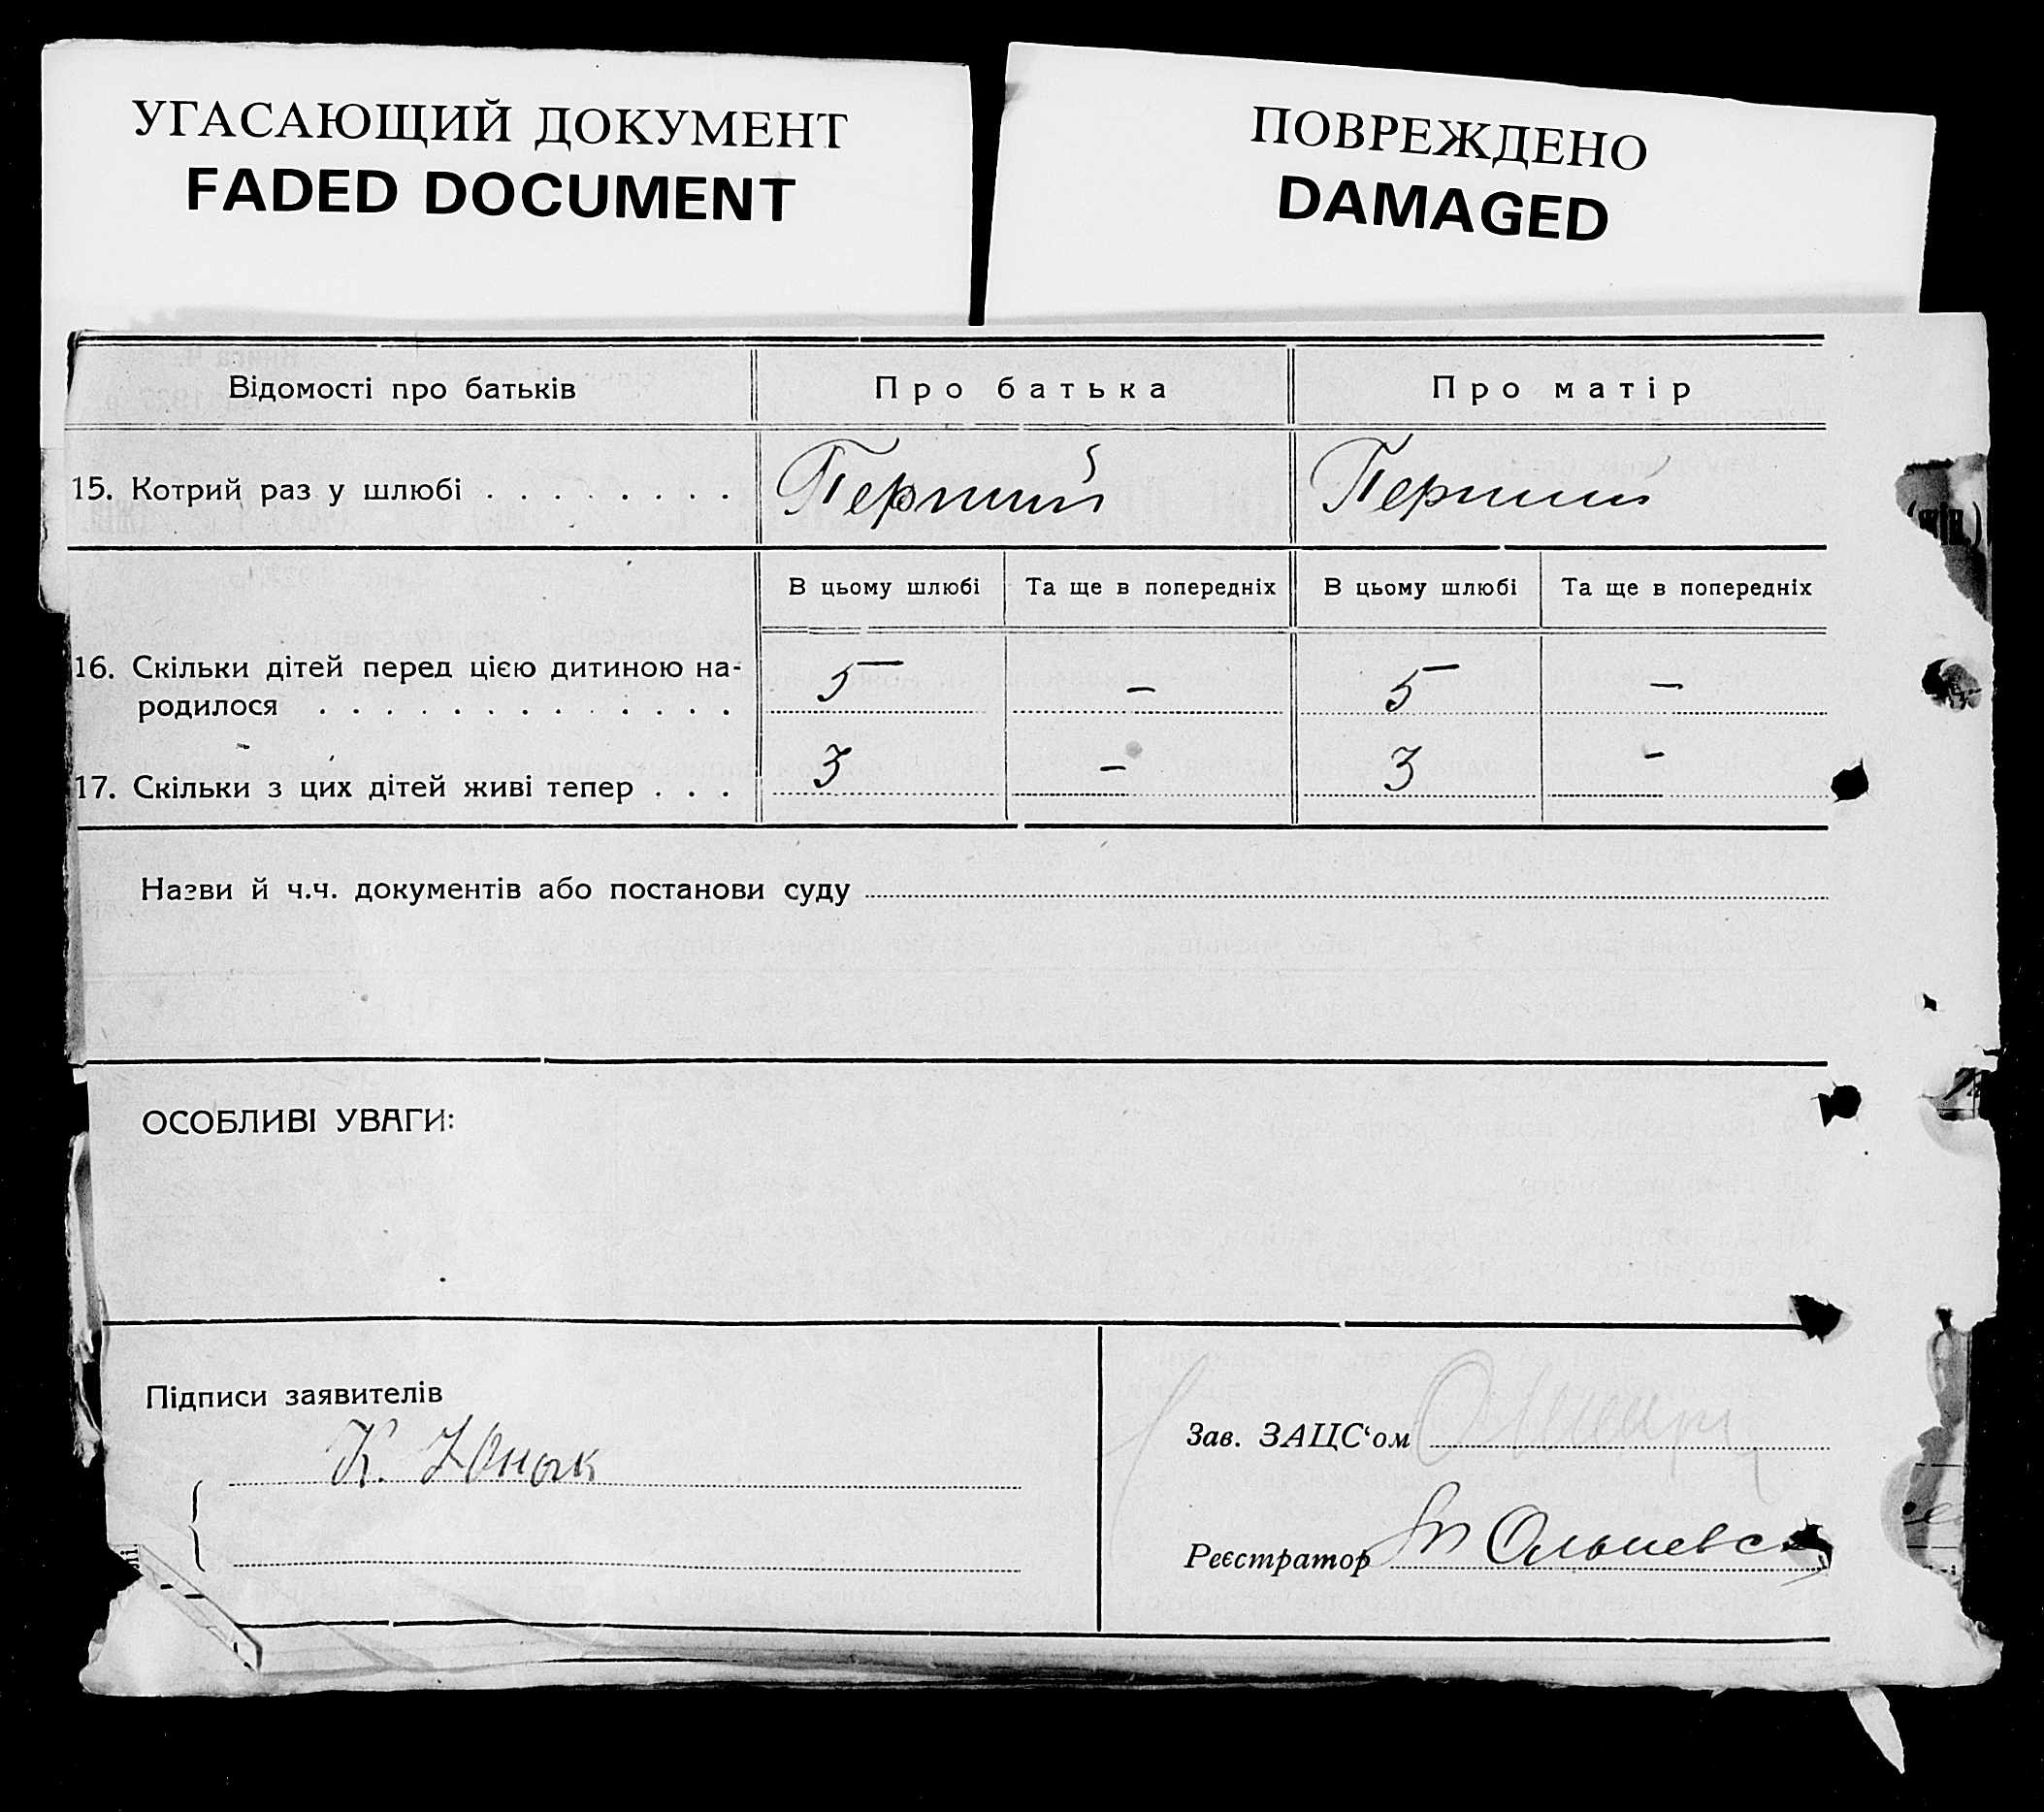 УГАСАЮЩИЙ ДОКУМЕНТ
FADED DOCUMENT
ПОВРЕЖДЕНО
DAMAGED
Відомості про батьків Про батька Про матір
15. Котрий раз у шлюбі . . . . . . . . Перший Перший
В цьому шлюбі Та ще в попередніх В цьому шлюбі Та ще в попередніх
16. Скільки дітей перед цією дитиною на-
родилося . . . . . . . . . . . . . 5 – 5 –
17. Скільки з цих дітей живі тепер . . . 3 – 3 –
Назви й ч.ч. документів або постанови суду
ОСОБЛИВІ УВАГИ:
Підписи заявителів
К.
Зав. ЗАЦС‘ом
Реєстратор